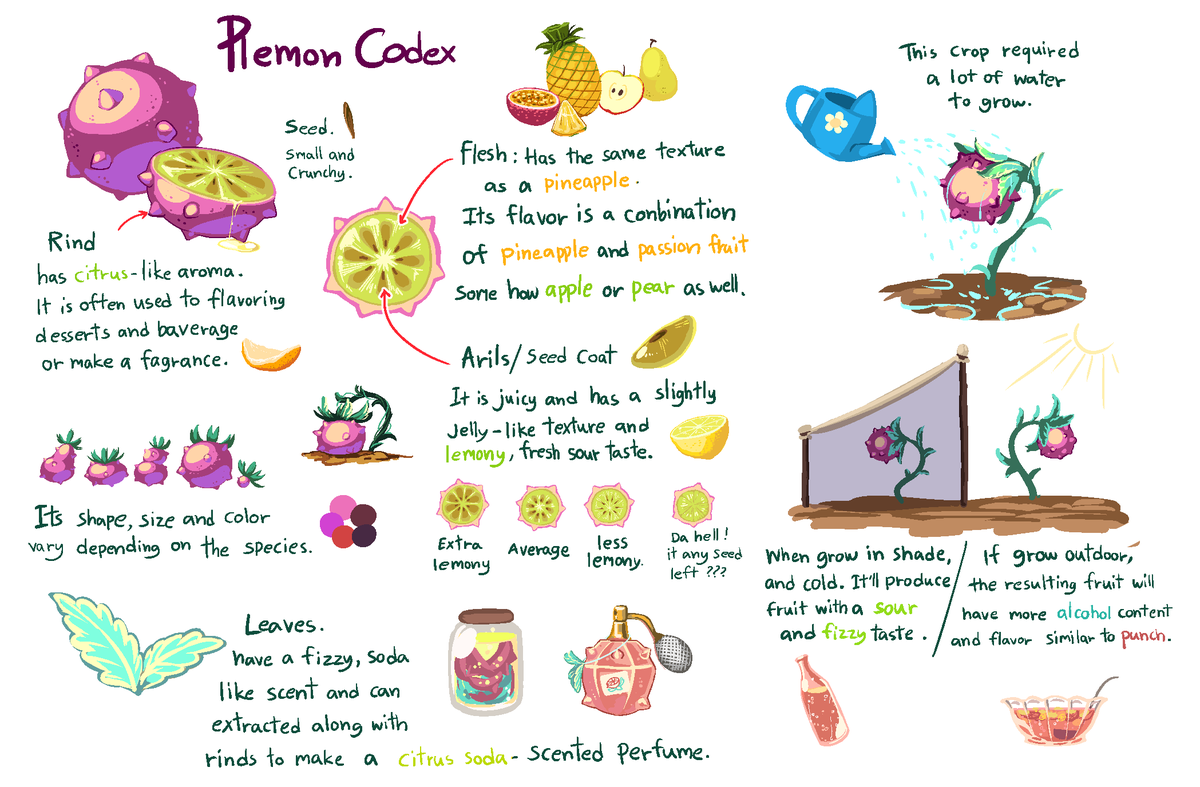 Plemon Codex
Seed.
Small and
Crunchy.
Rind
has citrus-like aroma.
It is often used to flavoring
desserts and baverage
or make a fagrance.
Flesh: Has the same texture
as a pineapple.
Its flavor is a conbination
of pineapple and passion fruit
Some how apple or pear as well.
Arils/Seed Coat
It is juicy and has a slightly
Jelly-like texture and
lemony, fresh sour taste.
Extra
lemony
Average
less
lemony.
Da hell!
it any seed
left ???
Its shape, size and color
vary depending on the species.
Leaves.
have a fizzy, soda
like scent and can
extracted along with
rinds to make a citrus soda-scented perfume.
This crop required
a lot of water
to grow.
When grow in shade,
and cold. It'll produce
fruit with a sour
and fizzy taste.
If grow outdoor,
the resulting fruit will
have more alcohol content
and flavor similar to punch.